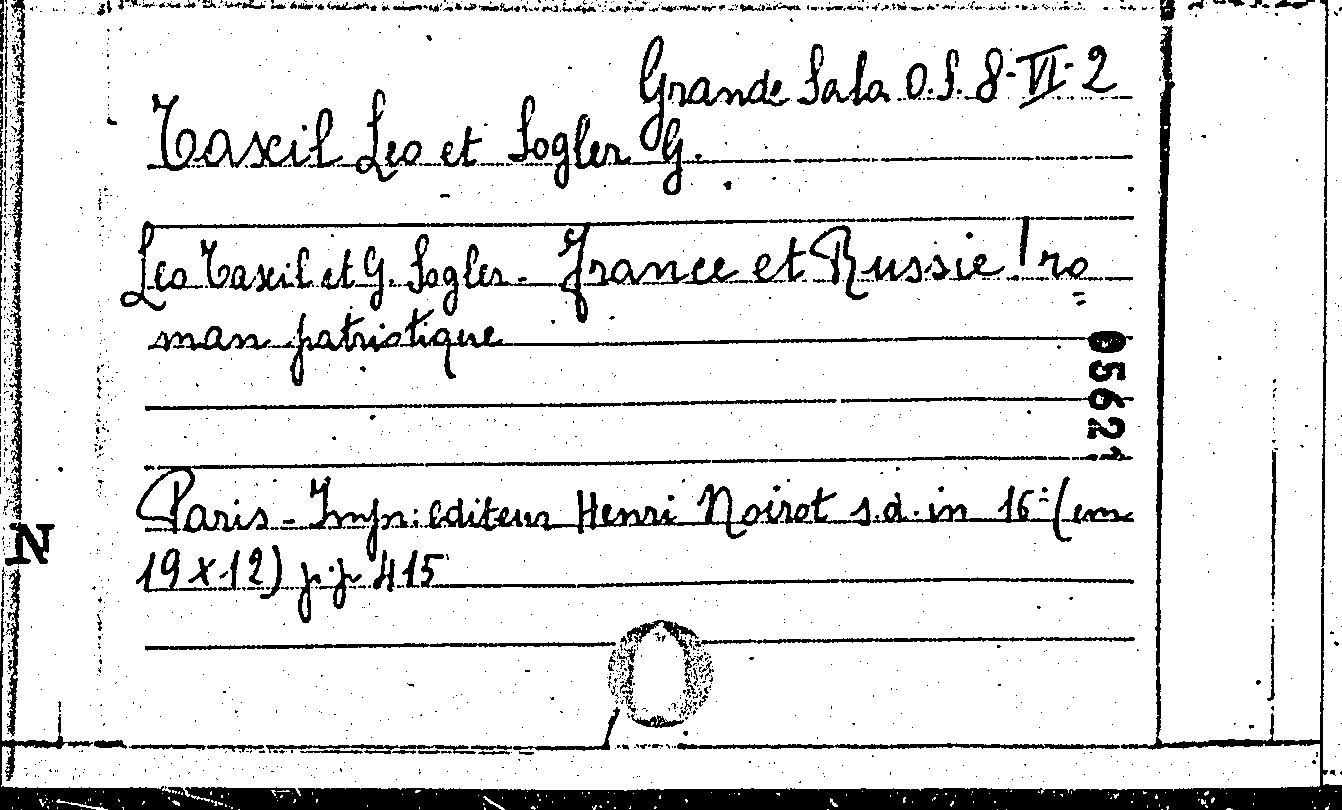 Grande Sala O.S. 8-VI-2
Taxil Leo et Sogler G.
Leo Taxil et G. Sogler - France et Russie! ro
man patriotique
05621
Paris - Imp: editeur Henri Noirot s.d. in 16° (cm
19 x 12) p.p. 415
N